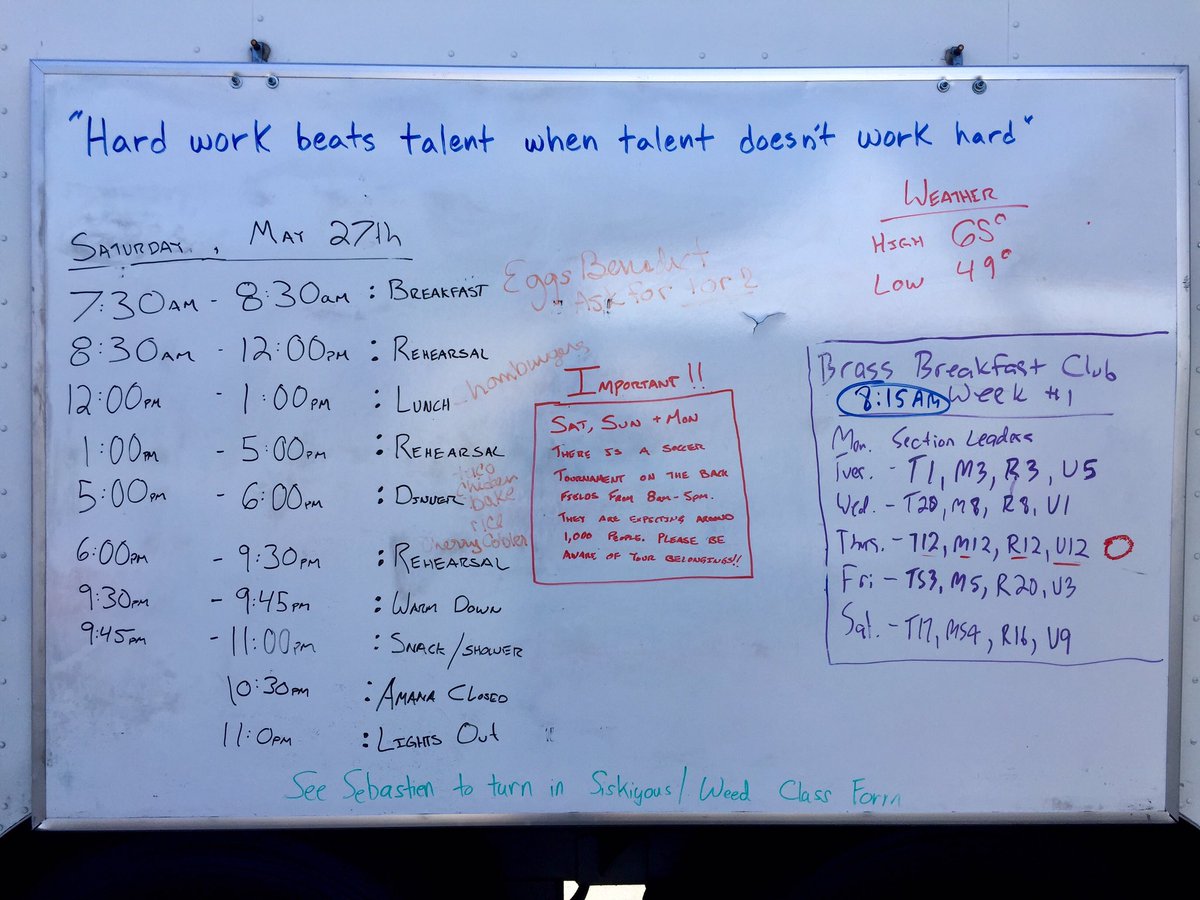 "Hard work beats talent when talent doesn't work hard"
WEATHER
HIGH 65°
LOW 49°
SATURDAY, MAY 27th
7:30AM - 8:30AM : BREAKFAST Eggs Benedict
Ask for 1 or 2
8:30AM - 12:00PM : REHEARSAL
12:00PM - 1:00PM : LUNCH hamburgers
1:00PM - 5:00PM : REHEARSAL
5:00PM - 6:00PM : DINNER
chicken
bake
rice
cherry cobler
6:00PM - 9:30PM : REHEARSAL
9:30PM - 9:45PM : WARM DOWN
9:45PM - 11:00PM : SNACK/SHOWER
10:30PM : AMANA CLOSED
11:0PM : LIGHTS OUT
IMPORTANT!!
SAT, SUN + MON
THERE IS A SOCCER
TOURNAMENT ON THE BACK
FIELDS FROM 8AM-5PM.
THEY ARE EXPECTING AROUND
1,000 PEOPLE. PLEASE BE
AWARE OF YOUR BELONGINGS!!
Brass Breakfast Club
8:15AM Week #1
Mon. Section Leaders
Tues. - T1, M3, R3, U5
Wed. - T20, M8, R8, U1
Thurs. - T12, M12, R12, U12
Fri - TS3, M5, R20, U3
Sat. - T17, MS4, R16, U9
See Sebastien to turn in Siskiyous/Weed Class Form